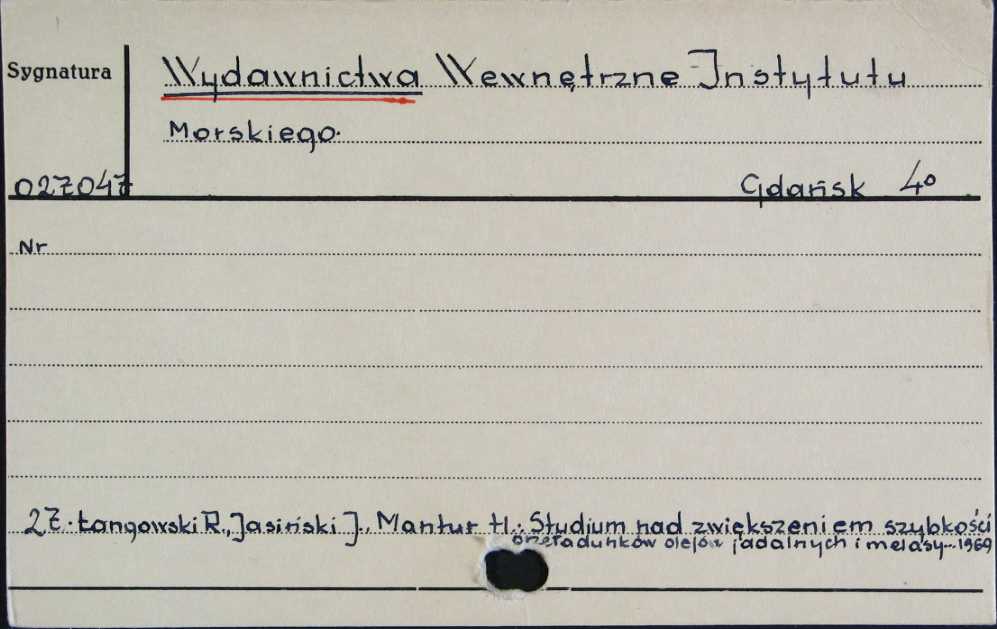 Sygnatura
Wydawnictwa Wewnętrzne Instytutu
Morskiego.
027047
Gdańsk 4°
Nr
27. Łangowski R., Jasiński J., Mantur H.: Studium nad zwiększeniem szybkości
przeładunków olejów jadalnych i melasy. 1969